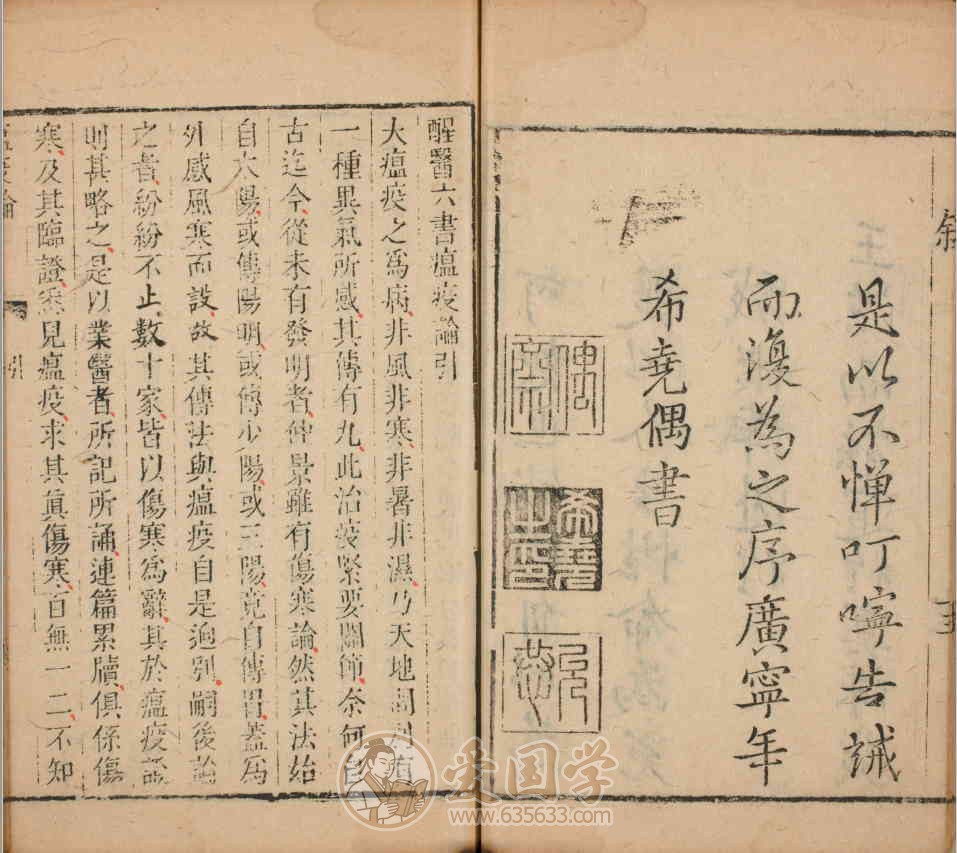 叙
是以不惮叮嚀告誡
而復為之序廣寧年
希堯偶書
希堯之印
醒醫六書瘟疫論引
夫瘟疫之為病非風非寒非暑非濕乃天地間別有
一種異氣所感其傳有九此治疫緊要關節奈何自
古迄今從未有發明者仲景雖有傷寒論然其法始
自太陽或傳陽明或傳少陽或三陽竟自傳胃蓋為
外感風寒而設故其傳法與瘟疫自是逈別嗣後論
之者紛紛不止數十家皆以傷寒為辭其於瘟疫證
則其略之是以業醫者所記所誦連篇累牘俱係傷
寒及其臨證悉見瘟疫求其真傷寒百無一二不知
瘟疫論
引
爱国学
www.635633.com